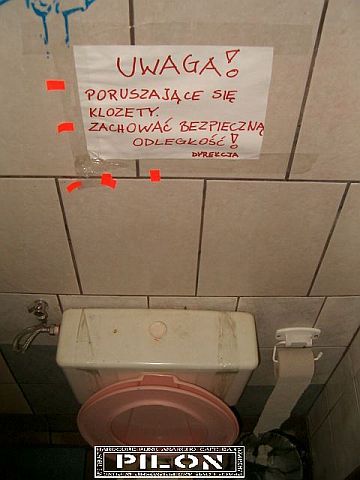 UWAGA!
PORUSZAJĄCE SIĘ
KLOZETY.
ZACHOWAĆ BEZPIECZNĄ
ODLEGŁOŚĆ!
DYREKCJA
PILON